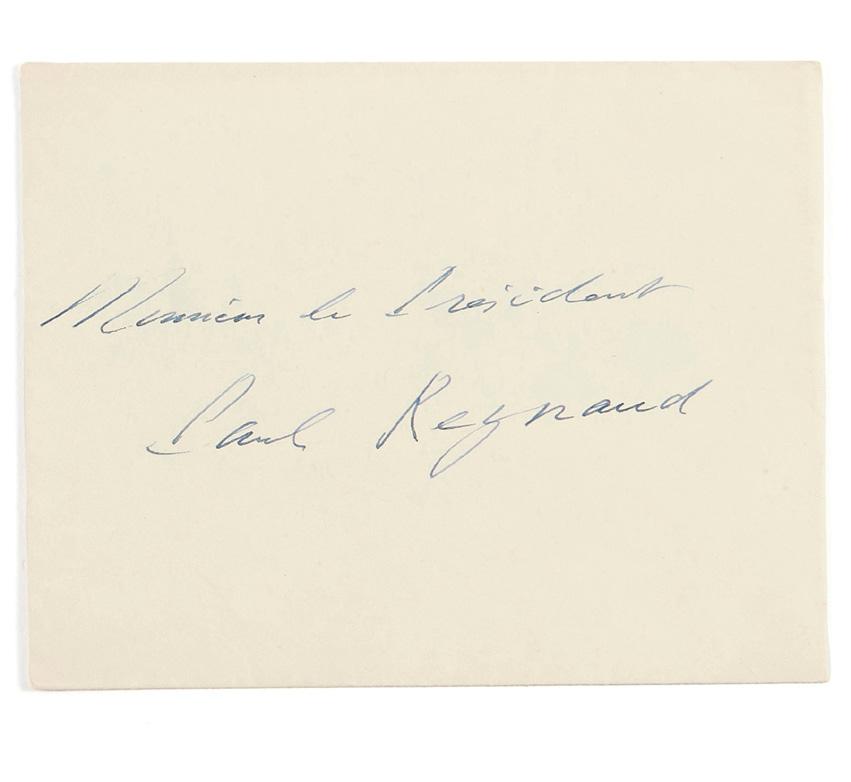 Monsieur le Président
Paul Reynaud